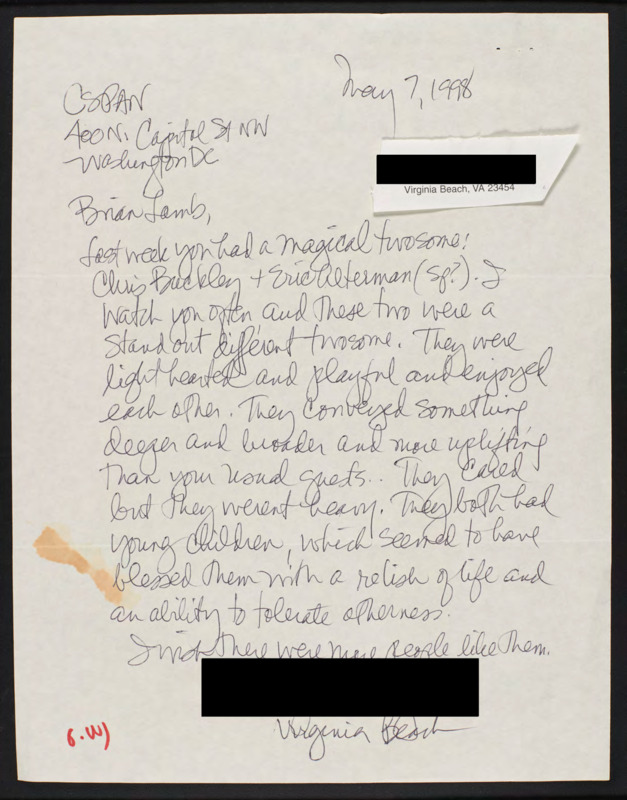 May 7, 1998
CSPAN
400 N. Capitol St NW
Washington DC
Virginia Beach, VA 23454
Brian Lamb,
Last week you had a magical twosome!
Chris Buckley + Eric Alterman (sp?). I
watch you often and these two were a
stand out different twosome. They were
light hearted and playful and enjoyed
each other. They conveyed something
deeper and broader and more uplifting
than your usual guests.. They cared
but they werent heavy. They both had
young children, which seemed to have
blessed them with a relish of life and
an ability to tolerate otherness.
I wish there were more people like them.
Virginia Beach